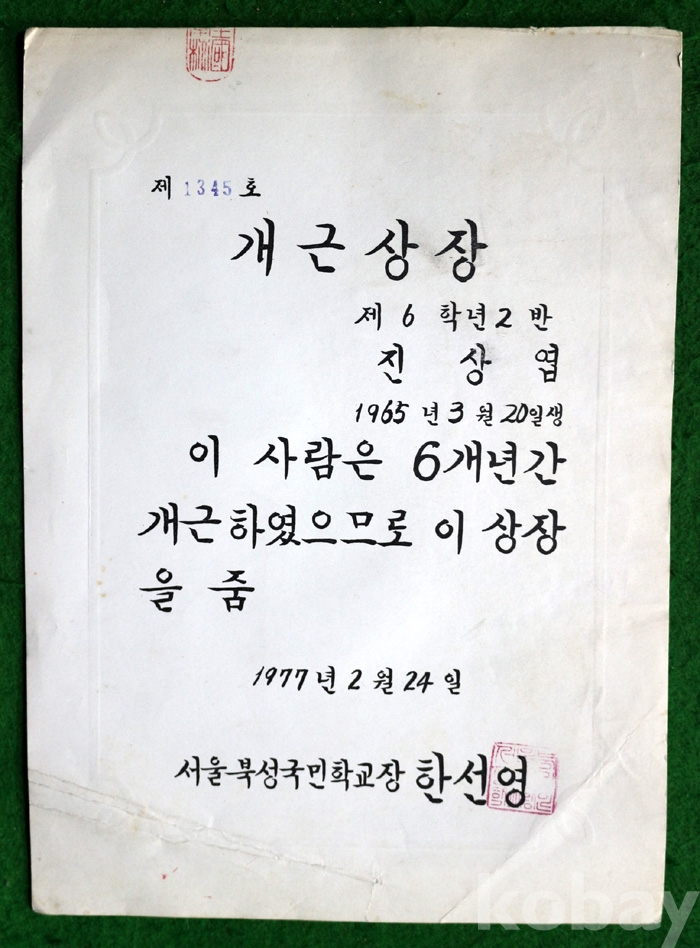 제 1345 호
개근상장
제 6 학년 2 반
진 상 엽
1965 년 3 월 20일생
이 사람은 6개년간
개근하였으므로 이 상장
을 줌
1977 년 2 월 24 일
서울북성국민학교장 한선영
kobay